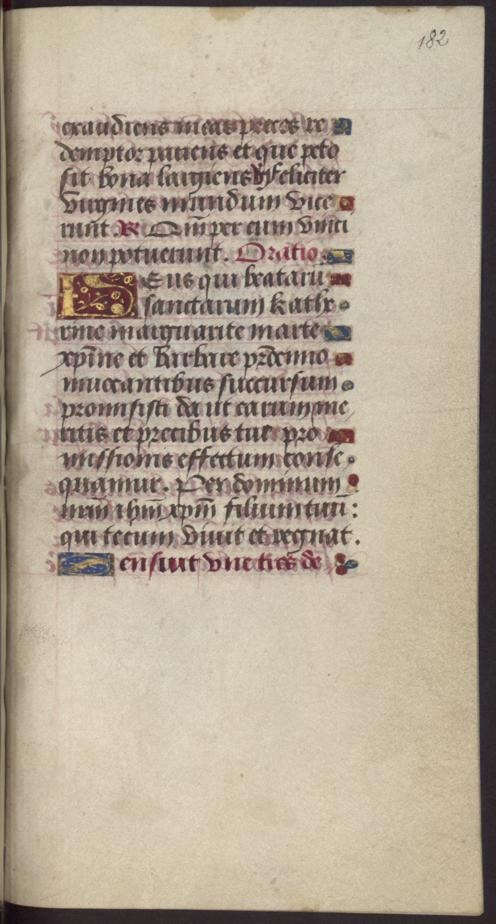 182
exaudiens meas preces re
demptor patiens et que peto
sit bona largiens. V̷ feliciter
virgines mundum vice
runt. R̷ Qm̄ per eum vinci
non potuerunt. Oratio.
Deus qui beataru
sanctarum kathe
rine marguarite marte
xp̄ine et barbare p̄demno
inuocantibus succursum
promisisti da ut earum me
ritis et precibus tue pro
missionis effectum conse
quamur. Per dominum
nr̄m ihm̄ xpm̄ filium tuū:
qui tecum viuit et regnat.
ensuit vne tres de